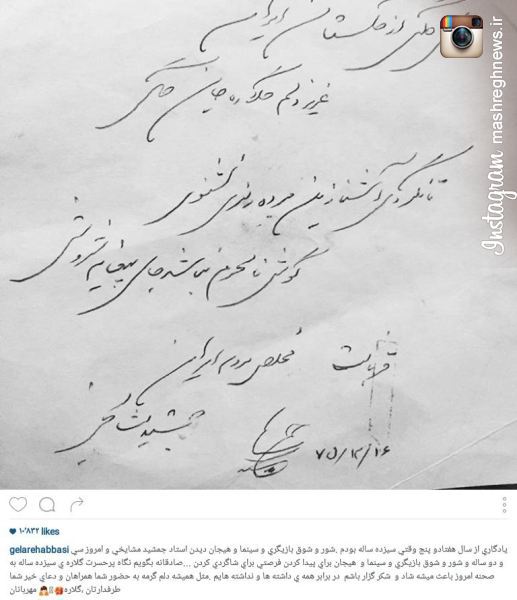 گلی از گلستان ایران
عزیز دلم گلاره جان
تا نگردی آشنا زین پرده رمزی نشنوی
گوش نامحرم نباشد جای پیغام سروش
قربانت
مخلص مردم ایران
جمشید مشایخی
Instagram mashreghnews.ir
۱۰٬۸۳۲ likes
gelarehabbasi يادگاري از سال هفتادو پنج وقتي سيزده ساله بودم .شور و شوق بازيگري و سينما و هيجان ديدن استاد جمشيد مشايخي و امروز سي
و دو ساله و شور و شوق بازيگري و سينما و هيجان براي پيدا كردن فرصتي براي شاگردي كردن ...صادقانه بگويم نگاه پرحسرت گلاره ي سيزده ساله به
صحنه امروز باعث ميشه شاد و شكر گزار باشم در برابر همه ي داشته ها و نداشته هايم .مثل هميشه دلم گرمه به حضور شما همراهان و دعاي خير شما
مهربانان طرفدارتان ,گلاره